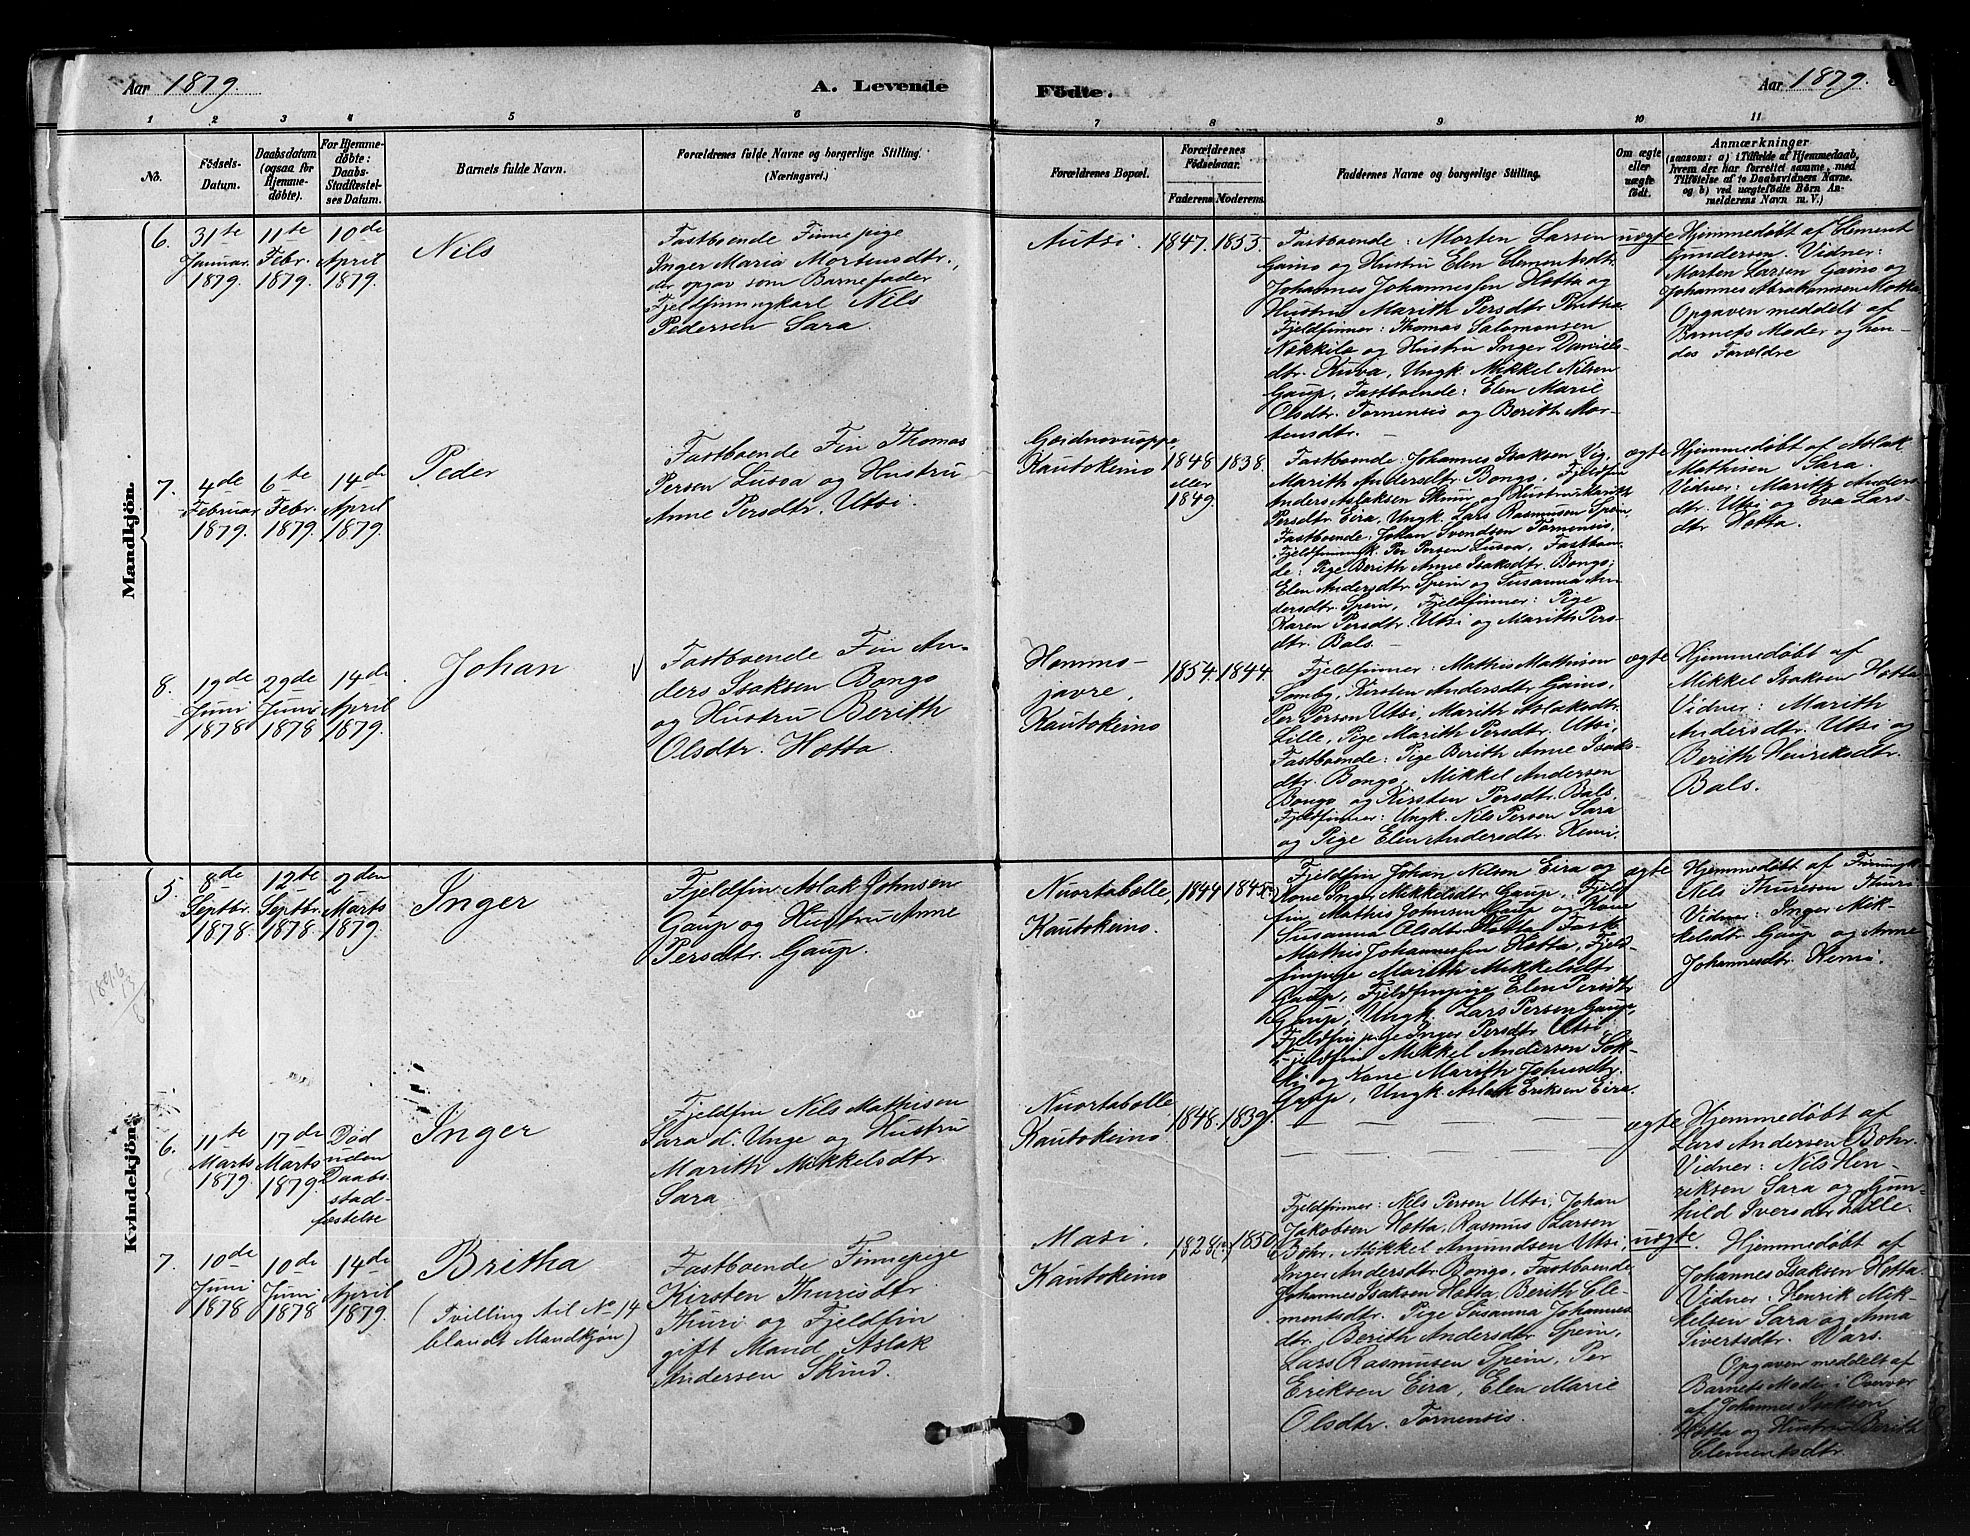 Aar 1879.
A. Levende
Födte.
Aar 1879.
1
2
3
4
5
6
7
8
9
10
11
No.
Födsels-
Datum.
Daabsdatum
(ogsaa for
Hjemme-
døbte).
For Hjemme-
døbte:
Daabs-
Stadfæstel-
ses Datum.
Barnets fulde Navn.
Forældrenes fulde Navne og borgerlige Stilling
(Næringsvei.)
Forældrenes Bopæl.
Forældrenes
Födselsaar.
Faderens
Moderens
Faddernes Navne og borgerlige Stilling.
Om ægte
eller
uægte
født.
Anmærkninger
(saasom: a) i Tilfælde af Hjemmedaab,
hvem der har forrettet samme, med
Tilföielse af to Daabsvidners Navne.
og b) ved uægtefödte Börn An-
melderens Navn m. V.)
Mandkjön.
6.
31te
Januar
1879.
11te
Febr.
1879.
10de
April
1879.
Nils
Fastboende Finnepige
Inger Maria Mortensdtr.,
der opgav som Barnefader
Fjeldfinnungkarl Nils
Pedersen Sara.
Autsi.
1847.
1855.
Fastboende: Morten Larsen
Gaino og Hustru Elen Clementsdtr.
Johannes Johannessen Hætta og
Hustru Marith Persdtr. Pentha
Fjeldfinner: Thomas Salomonsen
Nækkila og Hustru Inger Daniels-
dtr. Kuva, Ungk. Mikkel Nilsen
Gaup, Fastboende: Elen Marie
Olsdtr. Tornensis og Berith Mor-
tensdtr.
uægte
Hjemmedøbt af Clement
Gundersen. Vidner:
Morten Larsen Gaino og
Johannes Abrahamsen Hætta
Opgaven meddelt af
Barnets Moder og hen-
des Forældre
7.
4de
Februar
1879.
6te
Febr.
1879.
14de
April
1879.
Peder
Fastboende Fin Thomas
Persen Lusoa og Hustru
Anne Persdtr. Utsi.
Goidnovuoppe
Kautokeino
1848
eller
1849.
1838.
Fastboende: Johannes Isaksen Vig,
Marith Andersdtr. Bongo, Fjeldfin
Anders Aslaksen Skum og Hustru Marith
Persdtr. Eira, Ungk. Lars Rasmusen Spein,
Fastboende: Johan Svendsen Tornensis,
Fjeldfinungk. Per Persen Lusoa, Fastboen-
de: Pige Berith Anne Isaksdtr. Bongo,
Elen Andersdtr. Spein og Susanna An-
dersdtr. Spein, Fjeldfinner: Pige
Karen Persdtr. Utsi og Marith Pers-
dtr. Bals.
ægte
Hjemmedøbt af Aslak
Mathisen Sara.
Vidner: Marith Anders-
dtr. Utsi og Eva Lars-
dtr. Hætta.
8.
19de
Juni
1878
29de
Juni
1878
14de
April
1879.
Johan
Fastboende Fin An-
ders Isaksen Bongo
og Hustru Berith
Olsdtr. Hætta.
Hommo-
javre,
Kautokeino
1854.
1844.
Fjeldfinner: Mathis Mathisen
Somby, Kirsten Andersdtr. Gaino,
Per Persen Utsi, Marith Aslaksdtr.
Lille, Pige Marith Persdtr. Utsi,
Fastboende: Pige Berith Anne Isaks-
dtr. Bongo, Mikkel Andersen
Bongo og Kirsten Persdtr. Bals.
Fjeldfinner: Ungk. Nils Persen Sara
og Pige Elen Andersdtr. Kemi
ægte
Hjemmedøbt af
Mikkel Isaksen Hætta
Vidner: Marith
Andersdtr. Utsi og
Berith Henriksdtr.
Bals.
Kvindekjön.
5.
8de
Septbr.
1878.
12te
Septbr.
1878
2den
Marts
1879.
Inger
Fjeldfin Aslak Johnsen
Gaup og Hustru Anne
Persdtr. Gaup.
Nuortabelle,
Kautokeino.
1844
1845
Fjeldfin Johan Nilsen Eira og
Kone Inger Mikkelsdtr. Gaup, Fjeld-
fin Mathis Johnsen Gaup og Kone
Susanna Olsdtr. Hætta, Fastb.
Mathis Johannessen Hætta, Fjeld-
finpige Marith Mikkelsdtr
Gaup, Fjeldfinpige Elen Persdtr
Gaup, Ungk. Lars Persen Gaup,
Fjeldfinpige Inger Persdtr. Utsi
Fjeldfin Mikkel Andersen Sok-
ki og Kone Marith Johnsdtr.
Gaup, Ungk Aslak Eriksen Eira.
ægte
Hjemmedøbt af Finungk.
Nils Thuresen Thuri
Vidner: Inger Mik-
kelsdtr. Gaup og Anne
Johannesdtr. Kemi.
6.
11te
Marts
1879.
17de
Marts
1879.
Død
uden
Daabs-
stad-
fæstelse
Inger
Fjeldfin Nils Mathisen
Sara d. Unge og Hustru
Marith Mikkelsdtr.
Sara.
Nuortabelle
Kautokeino.
1848.
1839.
ægte
Hjemmedøbt af
Lars Andersen Bohr.
Vidner: Nils Hen-
riksen Sara og Gun-
hild Iversdtr Lille.
7.
10de
Juni
1878
10de
Juni
1878
14de
April
1879.
Britha
(Tvilling til No 14
blandt Mandkjøn)
Fastboende Finnepige
Kirsten Thurisdtr
Thuri og Fjeldfin
gift Mand Aslak
Andersen Skind.
Masi.
Kautokeino
1828
1850
Fjeldfinner: Nils Persen Utsi, Johan
Jakobsen Hætta, Rasmus Larsen
Bohr, Mikkel Amundsen Utsi,
Inger Andersdtr. Bongo, Fastboende
Johannes Isaksen Hætta, Berith Cle-
mentsdtr. Pige Susanna Johannes-
dtr. Berith Andersdtr. Spein,
Lars Rasmusen Spein, Per
Eriksen Eira, Elen Marie
Olsdtr. Tornensis.
uægte
Hjemmedøbt af
Johannes Isaksen Hætta.
Vidner: Henrik Mik-
kelsen Sara og Anna
Sivertsdtr. Vars.
Opgaven meddelt af
Barnets Moder i Overvær
af Johannes Isaksen
Hætta og Hustru Berith
Clementsdtr